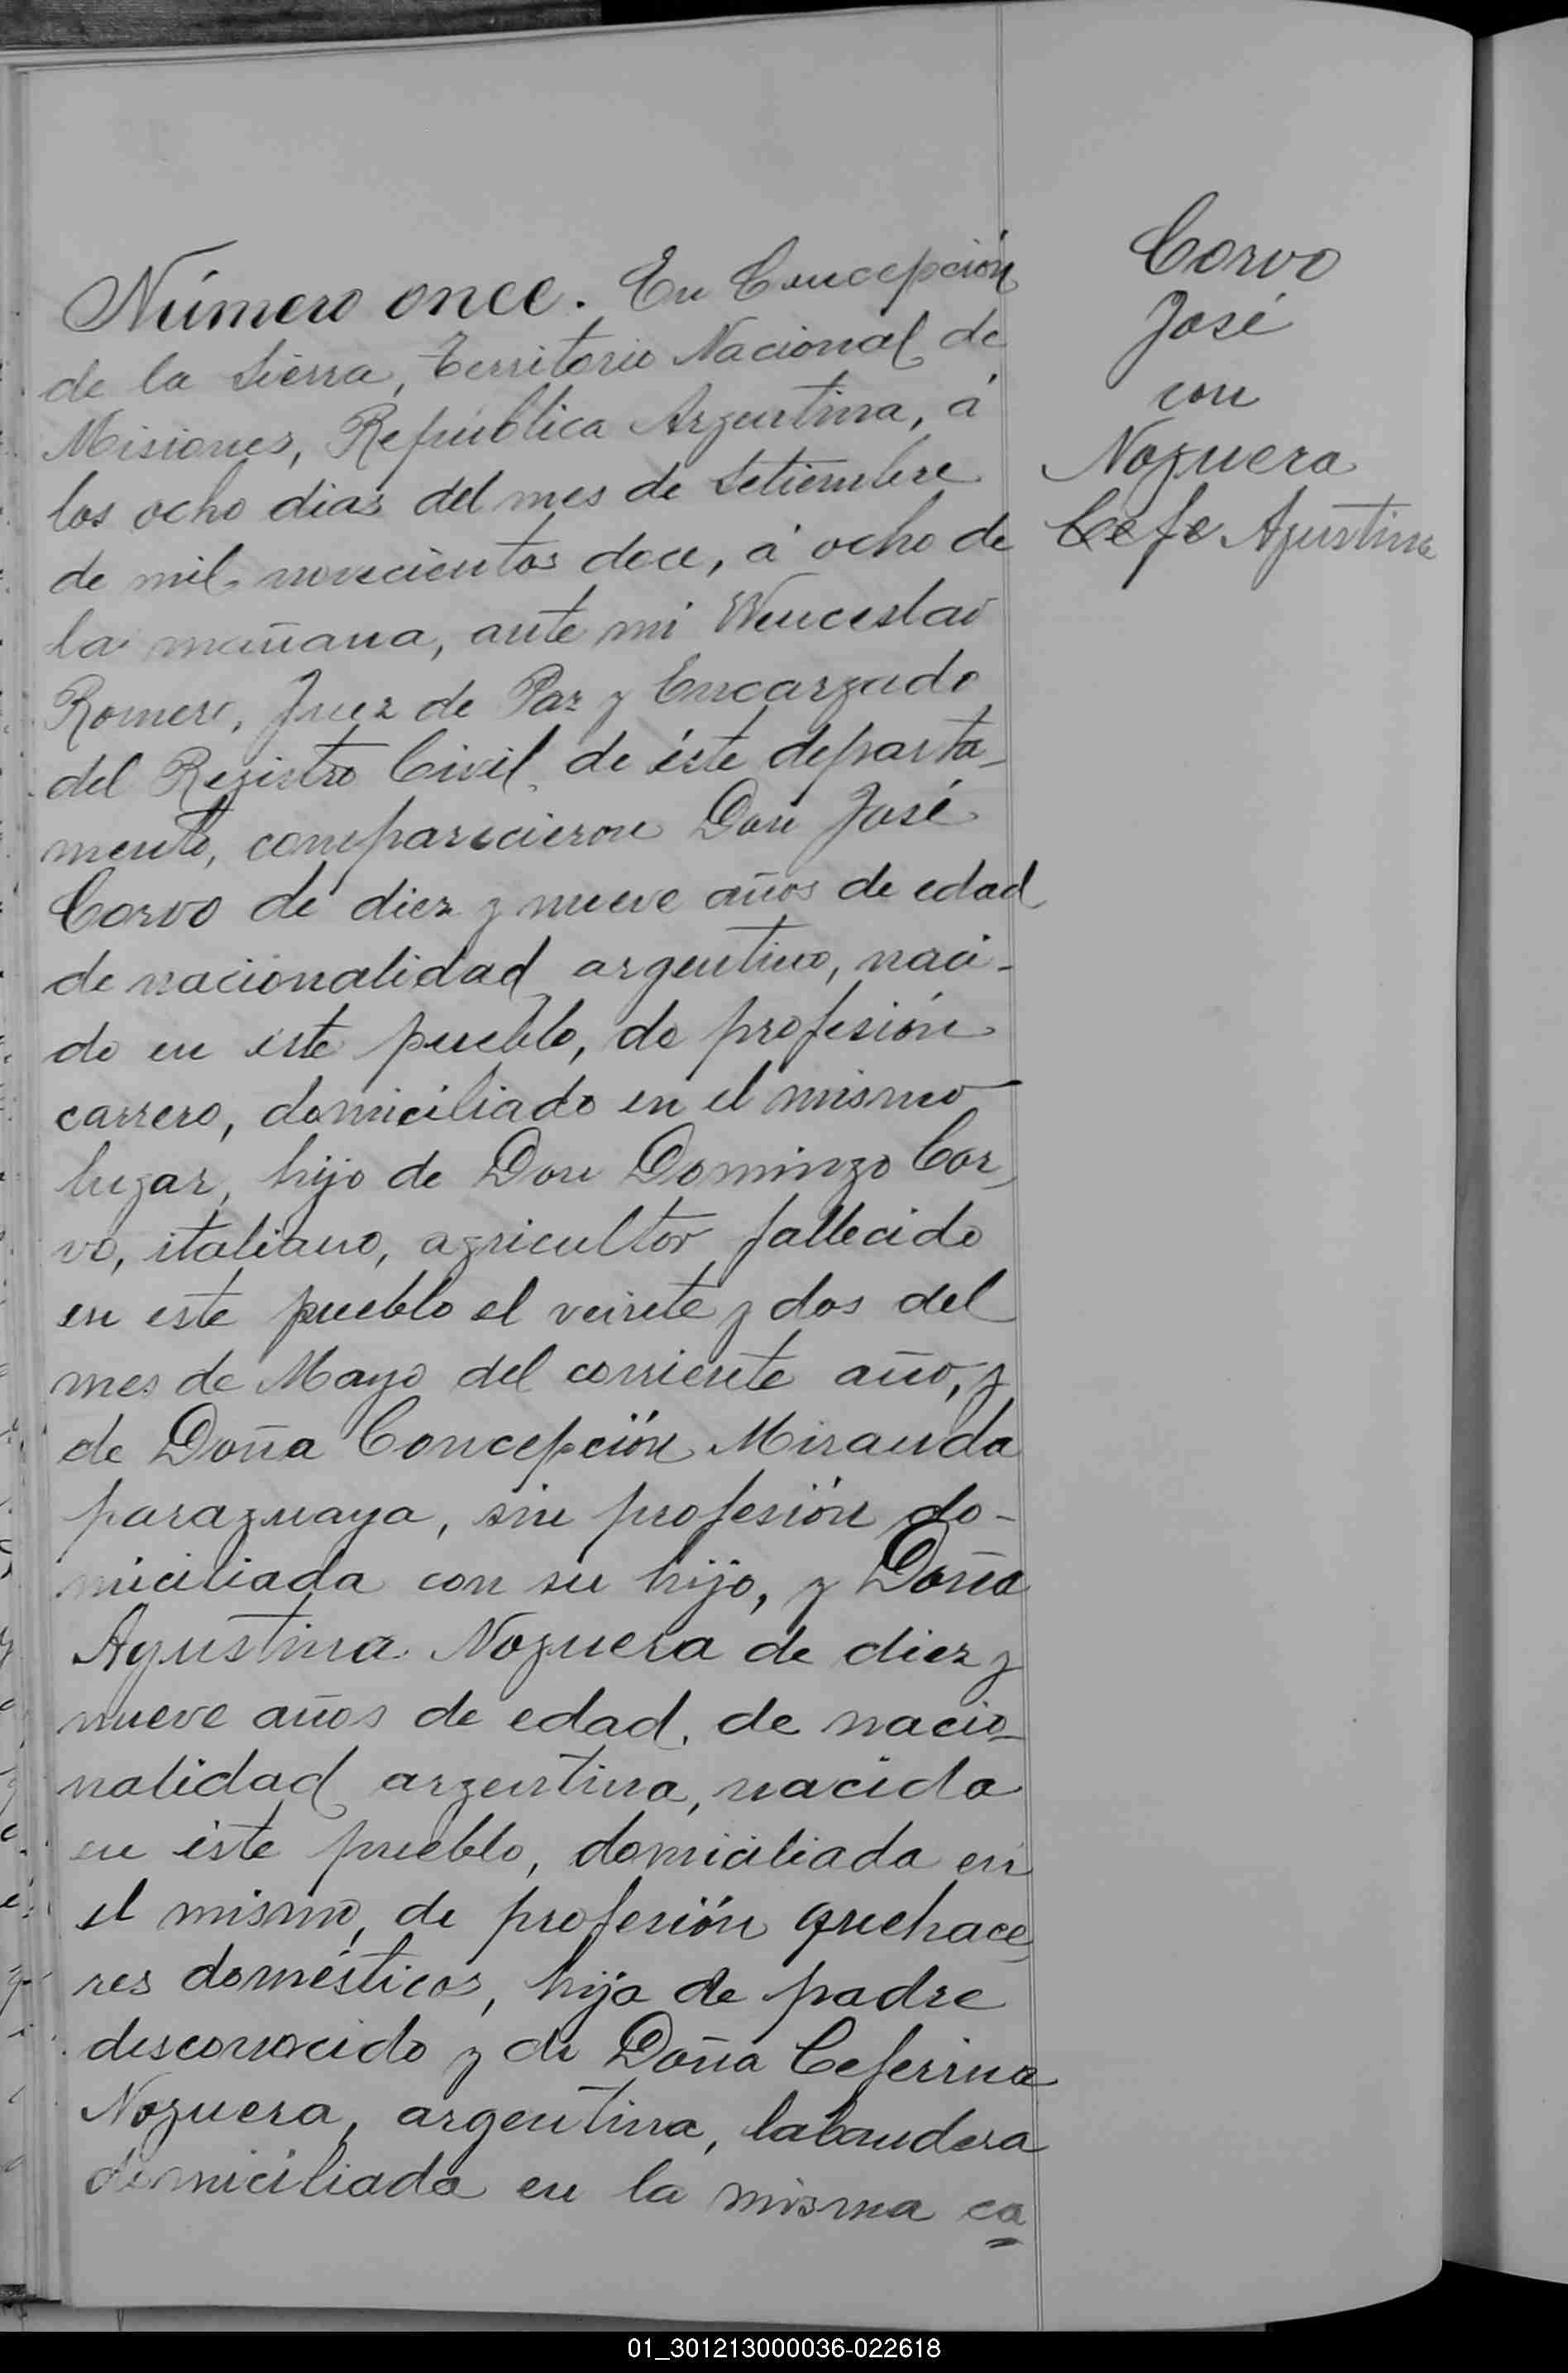 Número once. En Concepción
de la Sierra, Territorio Nacional de
Misiones, República Argentina, á
los ocho dias del mes de Setiembre
de mil novecientos doce, á ocho de
la mañana, ante mi Wenceslao
Romero, Juez de Paz y Encargado
del Registro Civil de éste departa-
mento, comparecieron Don José
Corvo de diez y nueve años de edad,
de nacionalidad argentino, naci-
do en éste pueblo, de profesión
carrero, domiciliado en el mismo
lugar, hijo de Don Domingo Cor-
vo, italiano, agricultor fallecido
en este pueblo el veinte y dos del
mes de Mayo del corriente año, y
de Doña Concepción Miranda
paraguaya, sin profesión do-
miciliada con su hijo, y Doña
Agustina Noguera de diez y
nueve años de edad, de nacio-
nalidad argentina, nacida
en éste pueblo, domiciliada en
el mismo, de profesión quehace-
res domésticos, hija de padre
desconocido y de Doña Ceferina
Noguera, argentina, labandera
domiciliada en la misma ca
Corvo
José
con
Noguera
Cefe Agustina
01_301213000036-022618